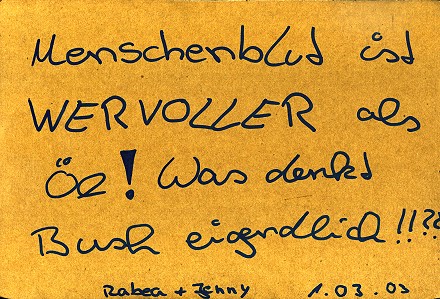 Menschenblut ist
WERVOLLER als
Öl! Was denkt
Bush eigendlich!!??
Rabea + Jenny 1.03.03